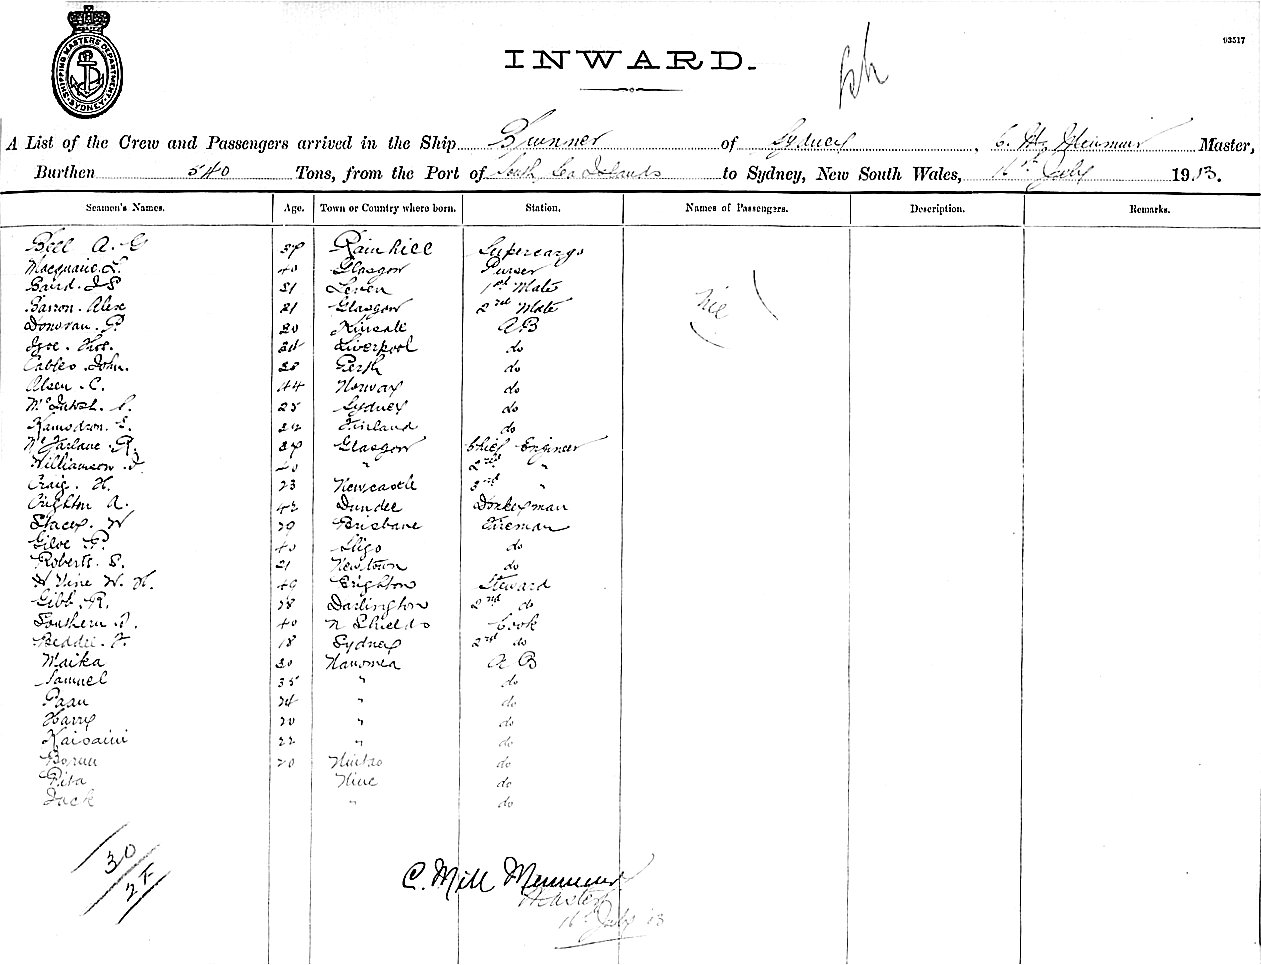 SHIPPING MASTERS DEPARTMENT SYDNEY
03517
INWARD.
A List of the Crew and Passengers arrived in the Ship Brunner of Sydney, C. M. Master,
Burthen 540 Tons, from the Port of South Sea Islands to Sydney, New South Wales, 16th July 1913.
Seamen's Names. Age. Town or Country where born. Station. Names of Passengers. Description. Remarks.
Bell A. G 37 Rainhill Supercargo
Macquarie. 40 Glasgow Purser
Baird. J S 31 Leven 1st Mate
Barron. Alex 21 Glasgow 2nd Mate nil
Donovan. P. 20 Kinsale A B
34 Liverpool do
Cables. John. 28 Perth do
Olsen. C. 44 Norway do
McIntosh. 25 Sydney do
Finland do
McFarlane. R. 37 Glasgow Chief Engineer
Williamson. J. 40 " 2nd "
Craig. H. 23 Newcastle 3rd "
Crighton A. 42 Dundee Donkeyman
Stacey. W 29 Brisbane Fireman
40 Sligo do
Roberts. S. 21 Newtown do
W. H. 40 Brighton Steward
Gibb. R. 28 Darlington 2nd do
Southern. J. 40 N Shields Cook
18 Sydney 2nd do
Maika 30 Nanomea A B
Samuel 35 " do
Paau 24 " do
Harry 20 " do
22 " do
20 Niutao do
Pita Niue do
Jack " do
30
C. Mill
Master
16th July 13